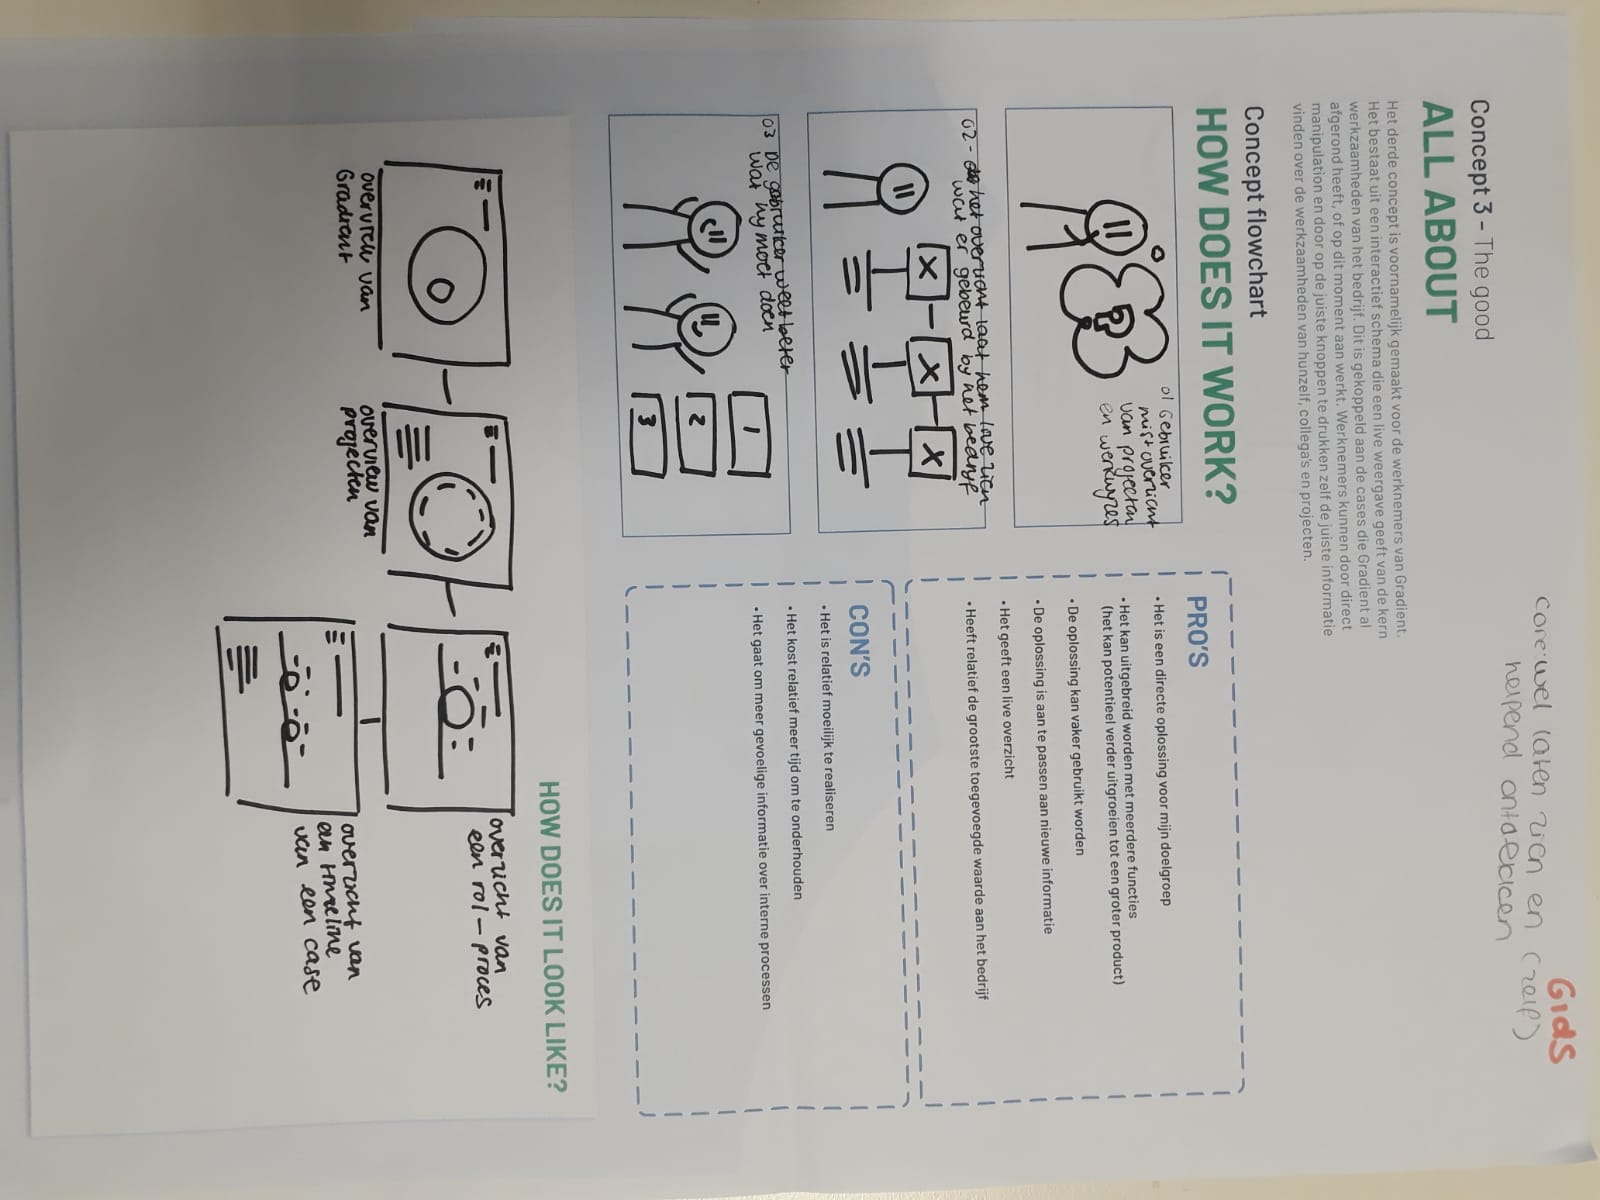 Gids
core: wel laten zien en (zelf)
helpend ontdekken
Concept 3 - The good
ALL ABOUT
Het derde concept is voornamelijk gemaakt voor de werknemers van Gradient.
Het bestaat uit een interactief schema die een live weergave geeft van de kern
werkzaamheden van het bedrijf. Dit is gekoppeld aan de cases die Gradient al
afgerond heeft, of op dit moment aan werkt. Werknemers kunnen door direct
manipulation en door op de juiste knoppen te drukken zelf de juiste informatie
vinden over de werkzaamheden van hunzelf, collega's en projecten.
Concept flowchart
HOW DOES IT WORK?
?
01 Gebruiker
mist overzicht
van projecten
en werkwijzes
02 - het overzicht laat hem live zien
wat er gebeurd bij het bedrijf
X X X
03 De gebruiker weet beter
wat hij moet doen
1
2
3
PRO'S
• Het is een directe oplossing voor mijn doelgroep
• Het kan uitgebreid worden met meerdere functies
(het kan potentieel verder uitgroeien tot een groter product)
• De oplossing kan vaker gebruikt worden
• De oplossing is aan te passen aan nieuwe informatie
• Het geeft een live overzicht
• Heeft relatief de grootste toegevoegde waarde aan het bedrijf
CON'S
• Het is relatief moeilijk te realiseren
• Het kost relatief meer tijd om te onderhouden
• Het gaat om meer gevoelige informatie over interne processen
HOW DOES IT LOOK LIKE?
overview van
Gradient
overview van
projecten
overzicht van
een rol - proces
overzicht van
een timeline
van een case